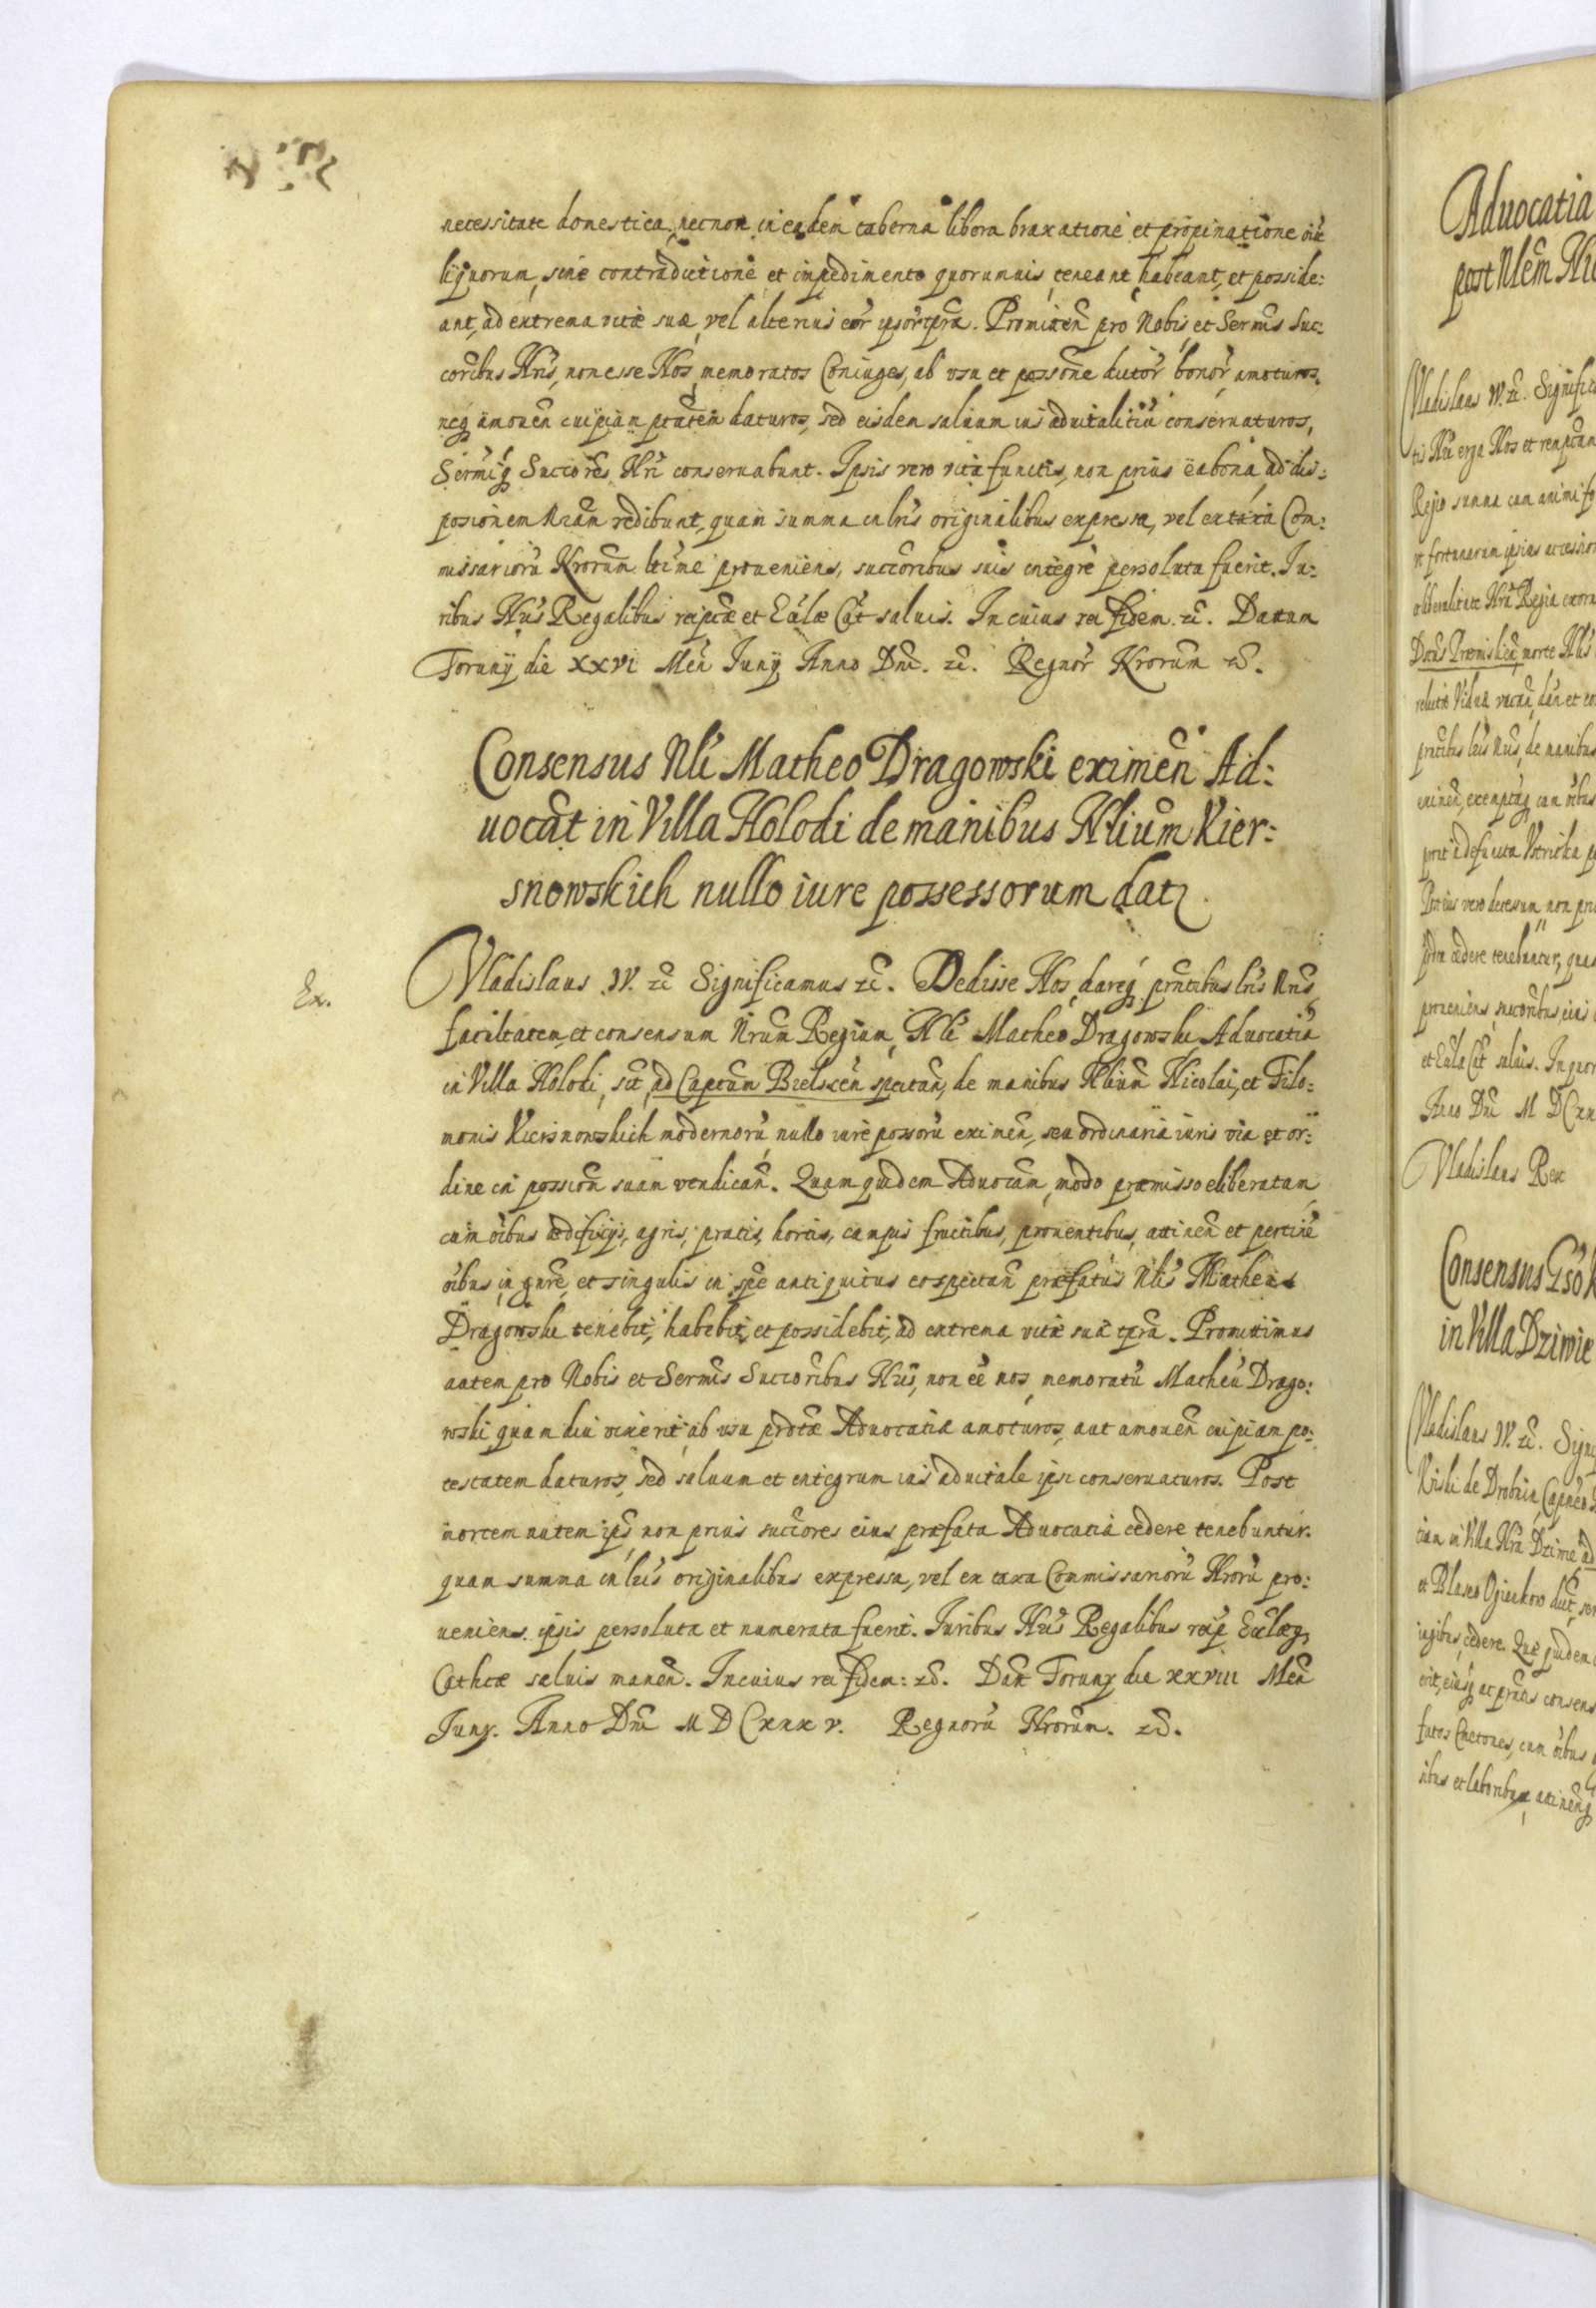 necessitate domestica, necnon in eadem taberna libera braxatione et propinatione oiu
liquorum, sine contradictione et impedimento quorumuis, teneant, habeant, et posside:
ant, ad extrema vitæ suæ, vel alterius eor ipsor tpra. Promitten pro Nobis et Sermis Suc:
coribus Nris, non esse Nos, memoratos Coniuges, ab vsu et possone dictor bonor amoturos,
neq amouen cuipiam ptatem daturos, sed eisdem saluum ius aduitalitiu conseruaturos,
Sermiq Succores Nri conseruabunt. Ipsis vero vita functis, non prius ea bona, ad dis:
posionem Nram redibunt, quam summa in lris originalibus expressa, vel ex taxa Com:
missarioru Nrorum ltime proueniens, succoribus suis integre persoluta fuerit. Iu:
ribus Nris Regalibus reipcæ et Eccliæ Cat saluis. In cuius rei fidem. zc. Datum
Torunij die XXVI Men Iunij Anno Dni. zc. Regnor Nrorum zc.
Consensus Nli Matheo Dragowski eximen Ad:
uocat in Villa Holodi de manibus Nlium Kier:
snowskich nullo iure possessorum dat.
Ex.
Vladislaus IV. zc Significamus zc. Dedisse Nos, dareq pntibus lris Nris
facultatem et consensum Nrum Regium, Nli Matheo Dragowski Aduocatia
in Villa Holodi, sit, ad Captum Bielscen spectan, de manibus Nlium Nicolai, et Filo:
monis Kiersnowskich modernoru, nullo iure possoru eximen, seu ordinaria iuris via et or:
dine in possion suam vendican. Quam quidem Aduocam, modo præmisso eliberatam
cum oibus ædificijs, agris, pratis, hortis, campis fructibus, prouentibus, attinen et pertine
oibus, in gnre, et singulis in spe antiquitus eo spectan præfatus Nlis Matheus
Dragowski tenebit, habebit, et possidebit, ad extrema vitæ suæ tpra. Promittimus
autem pro Nobis et Sermis Succoribus Nris, non ee nos, memoratu Matheu Drago:
wski quam diu vixerit, ab vsu prdtæ Aduocatiæ amoturos, aut amouen cuipiam po:
testatem daturos, sed saluum et integrum ius aduitale ipsi conseruaturos. Post
mortem autem ips, non prius succores eius præfata Aduocatia cedere tenebuntur.
quam summa in lris originalibus expressa, vel ex taxa Commissarioru Nroru pro:
ueniens. ipsis persoluta et numerata fuerit. Iuribus Nris Regalibus reip Ecclæq
Cathcæ saluis manen. In cuius rei fidem: zc. Dat Toruny die XXVIII Men
Iuny. Anno Dni M D C XXX V. Regnoru Nrorum. zc.
Aduocatia
post Nlem
Vladislaus IV. zc. Signific
tis Nri erga Nos et rempcam
Regio summa cum animi
vt fortunarum ipsius accession
liberalitate Nra Regia exorn
morte Nlis
relictæ Vidua
pntibus lris Nris, de manibus
eximen, exemptaq cum oibus
non pri
cedere tenebuntur, quam
proueniens, succoribus eius
saluis. In quor
Anno Dni M D C XX
Vladislaus Rex
Consensus
in Villa Dziwie
Vladislaus IV. zc. Signi
in Villa Nra Dziwie ad
cedere. Quæ quidem
cum oibus